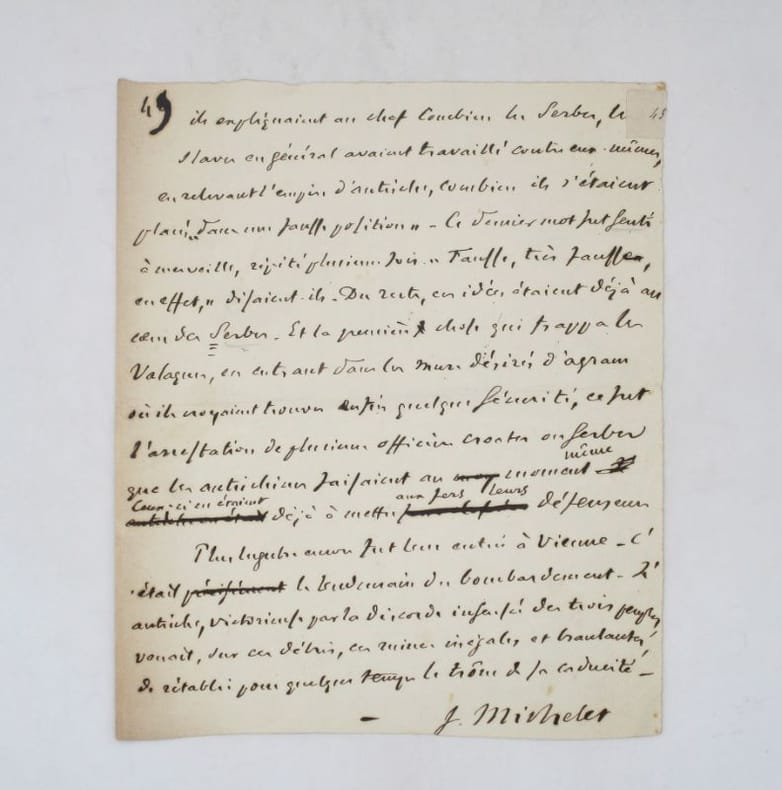 49 ils expliquaient au chef combien les Serbes, les 45
slaves en général avaient travaillé contre eux-mêmes,
en relevant l'empire d'autriche, combien ils s'étaient
placés "dans une fausse position" - Ce dernier mot fut senti
à merveille, répété plusieurs fois. "Fausse, très fausse,
en effet," disaient-ils. Du reste, ces idées étaient déjà au
cœur des Serbes. Et la première chose qui frappa les
Valaques, en entrant dans les murs désirés d'agram
où ils croyaient trouver enfin quelque sécurité, ce fut
l'arrestation de plusieurs officiers croates ou serbes
que les autrichiens faisaient au moment même
Ceux-ci en étaient déjà à mettre aux fers leurs défenseurs
Plus lugubre encore fut leur entrée à Vienne - C'
était précisément le lendemain du bombardement - L'
autriche, victorieuse par la discorde insensée des trois peuples,
venait, sur ces débris, ces ruines inégales et branlantes,
de rétablir pour quelque temps le trône de sa caducité -
J. Michelet